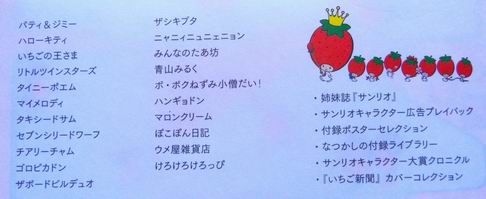 パティ&ジミー
ハローキティ
いちごの王さま
リトルツインスターズ
タイニーポエム
マイメロディ
タキシードサム
セブンシリードワーフ
チアリーチャム
ゴロピカドン
ザボードビルデュオ
ザシキブタ
ニャニィニュニェニョン
みんなのたあ坊
青山みるく
ポ・ボクねずみ小僧だい!
ハンギョドン
マロンクリーム
ぽこぽん日記
ウメ屋雑貨店
けろけろけろっぴ
・姉妹誌『サンリオ』
・サンリオキャラクター広告プレイバック
・付録ポスターセレクション
・なつかしの付録ライブラリー
・サンリオキャラクター大賞クロニクル
・『いちご新聞』カバーコレクション